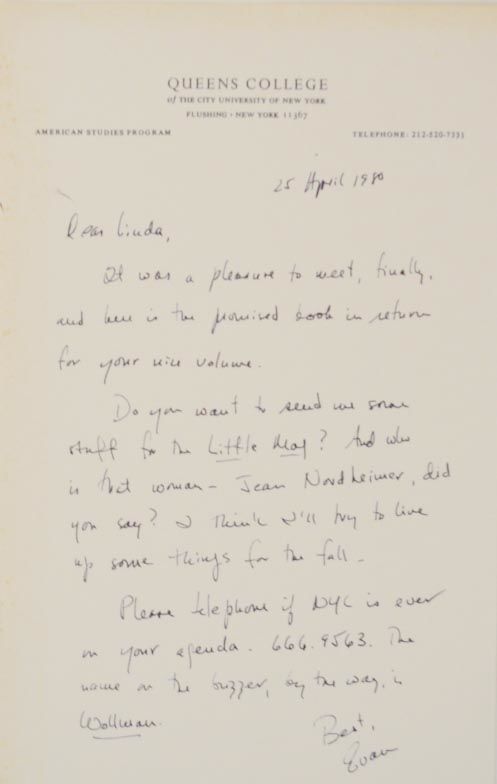 QUEENS COLLEGE
of THE CITY UNIVERSITY OF NEW YORK
FLUSHING · NEW YORK 11367
AMERICAN STUDIES PROGRAM
TELEPHONE: 212-520-7333
25 April 1980
Dear Linda,
It was a pleasure to meet, finally,
and here is the promised book in return
for your nice volume.
Do you want to send me some
stuff for the Little Mag? And who
is that woman - Jean Nordheimer, did
you say? I think I'll try to live
up some things for the fall.
Please telephone if NYC is ever
on your agenda. 666.9563. The
name on the buzzer, by the way, is
Wollman.
Best,
Evan